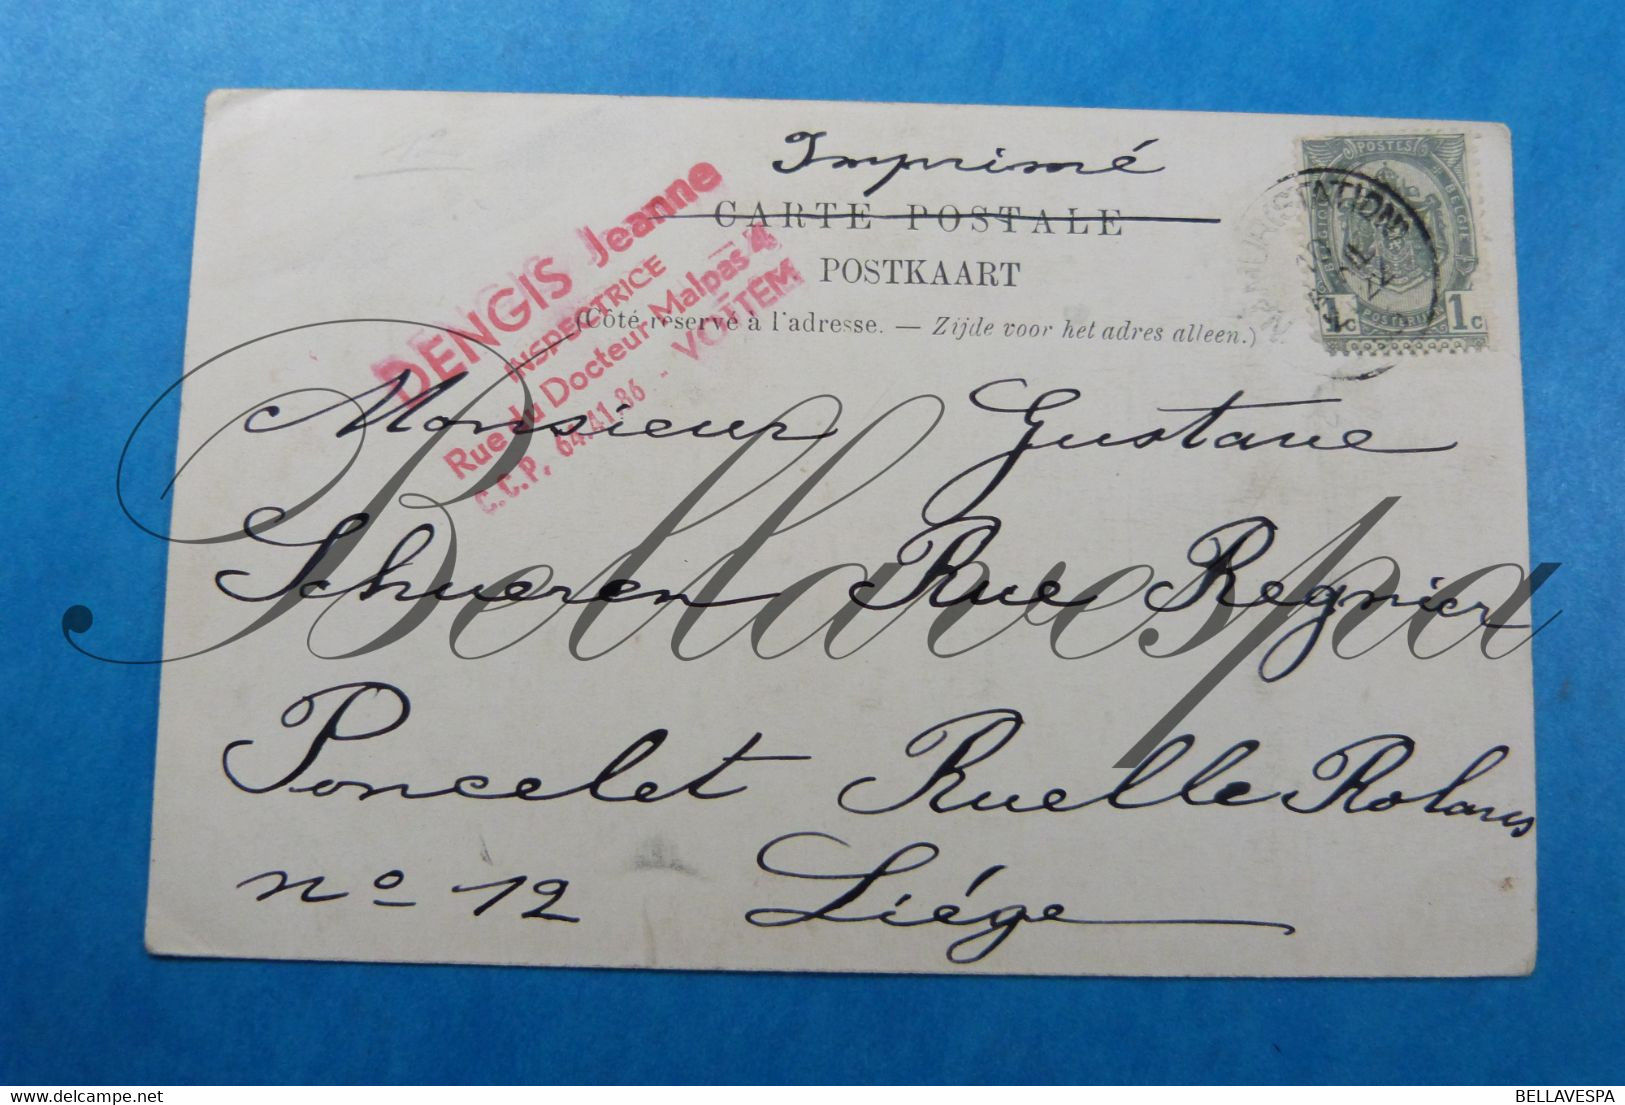 Imprimé
CARTE POSTALE
POSTKAART
(Côté réservé à l'adresse. — Zijde voor het adres alleen.)
DENGIS Jeanne
INSPECTRICE
Rue du Docteur Malpas 4
C.C.P. 64.41.86 - VOTTEM
POSTES
BELGIQUE BELGIE
1c 1c
POSTERIJEN
Monsieur Gustave
Schueren Rue Regnier
Poncelet Ruelle
no 12 Liége
Bellavespa
BELLAVESPA
delcampe.net